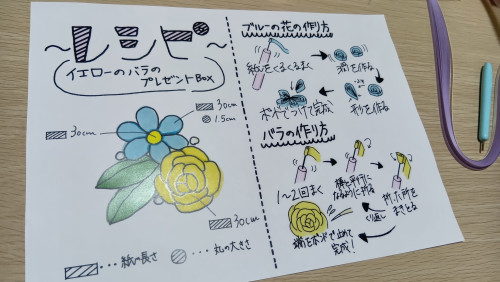 ～レシピ～
イエローのバラの
プレゼントBox
30cm
1.5cm
30cm
30cm
・・・紙の長さ
・・・丸の大きさ
ブルーの花の作り方
紙をくるくるまく
渦を作る
形を作る
ボンドでつけて完成
バラの作り方
1〜2回まく
横と平行に
なるように折る
折った所を
まきとる
くり返し
端をボンドで止めて
完成！